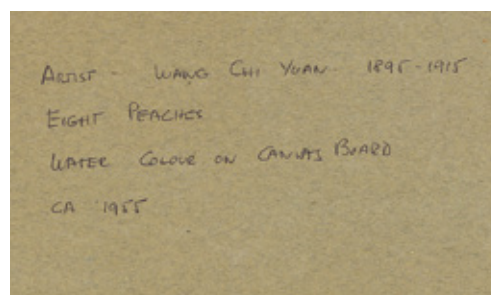 ARTIST - WANG CHI YUAN 1895-1915
EIGHT PEACHES
WATER COLOUR ON CANVAS BOARD
CA 1955